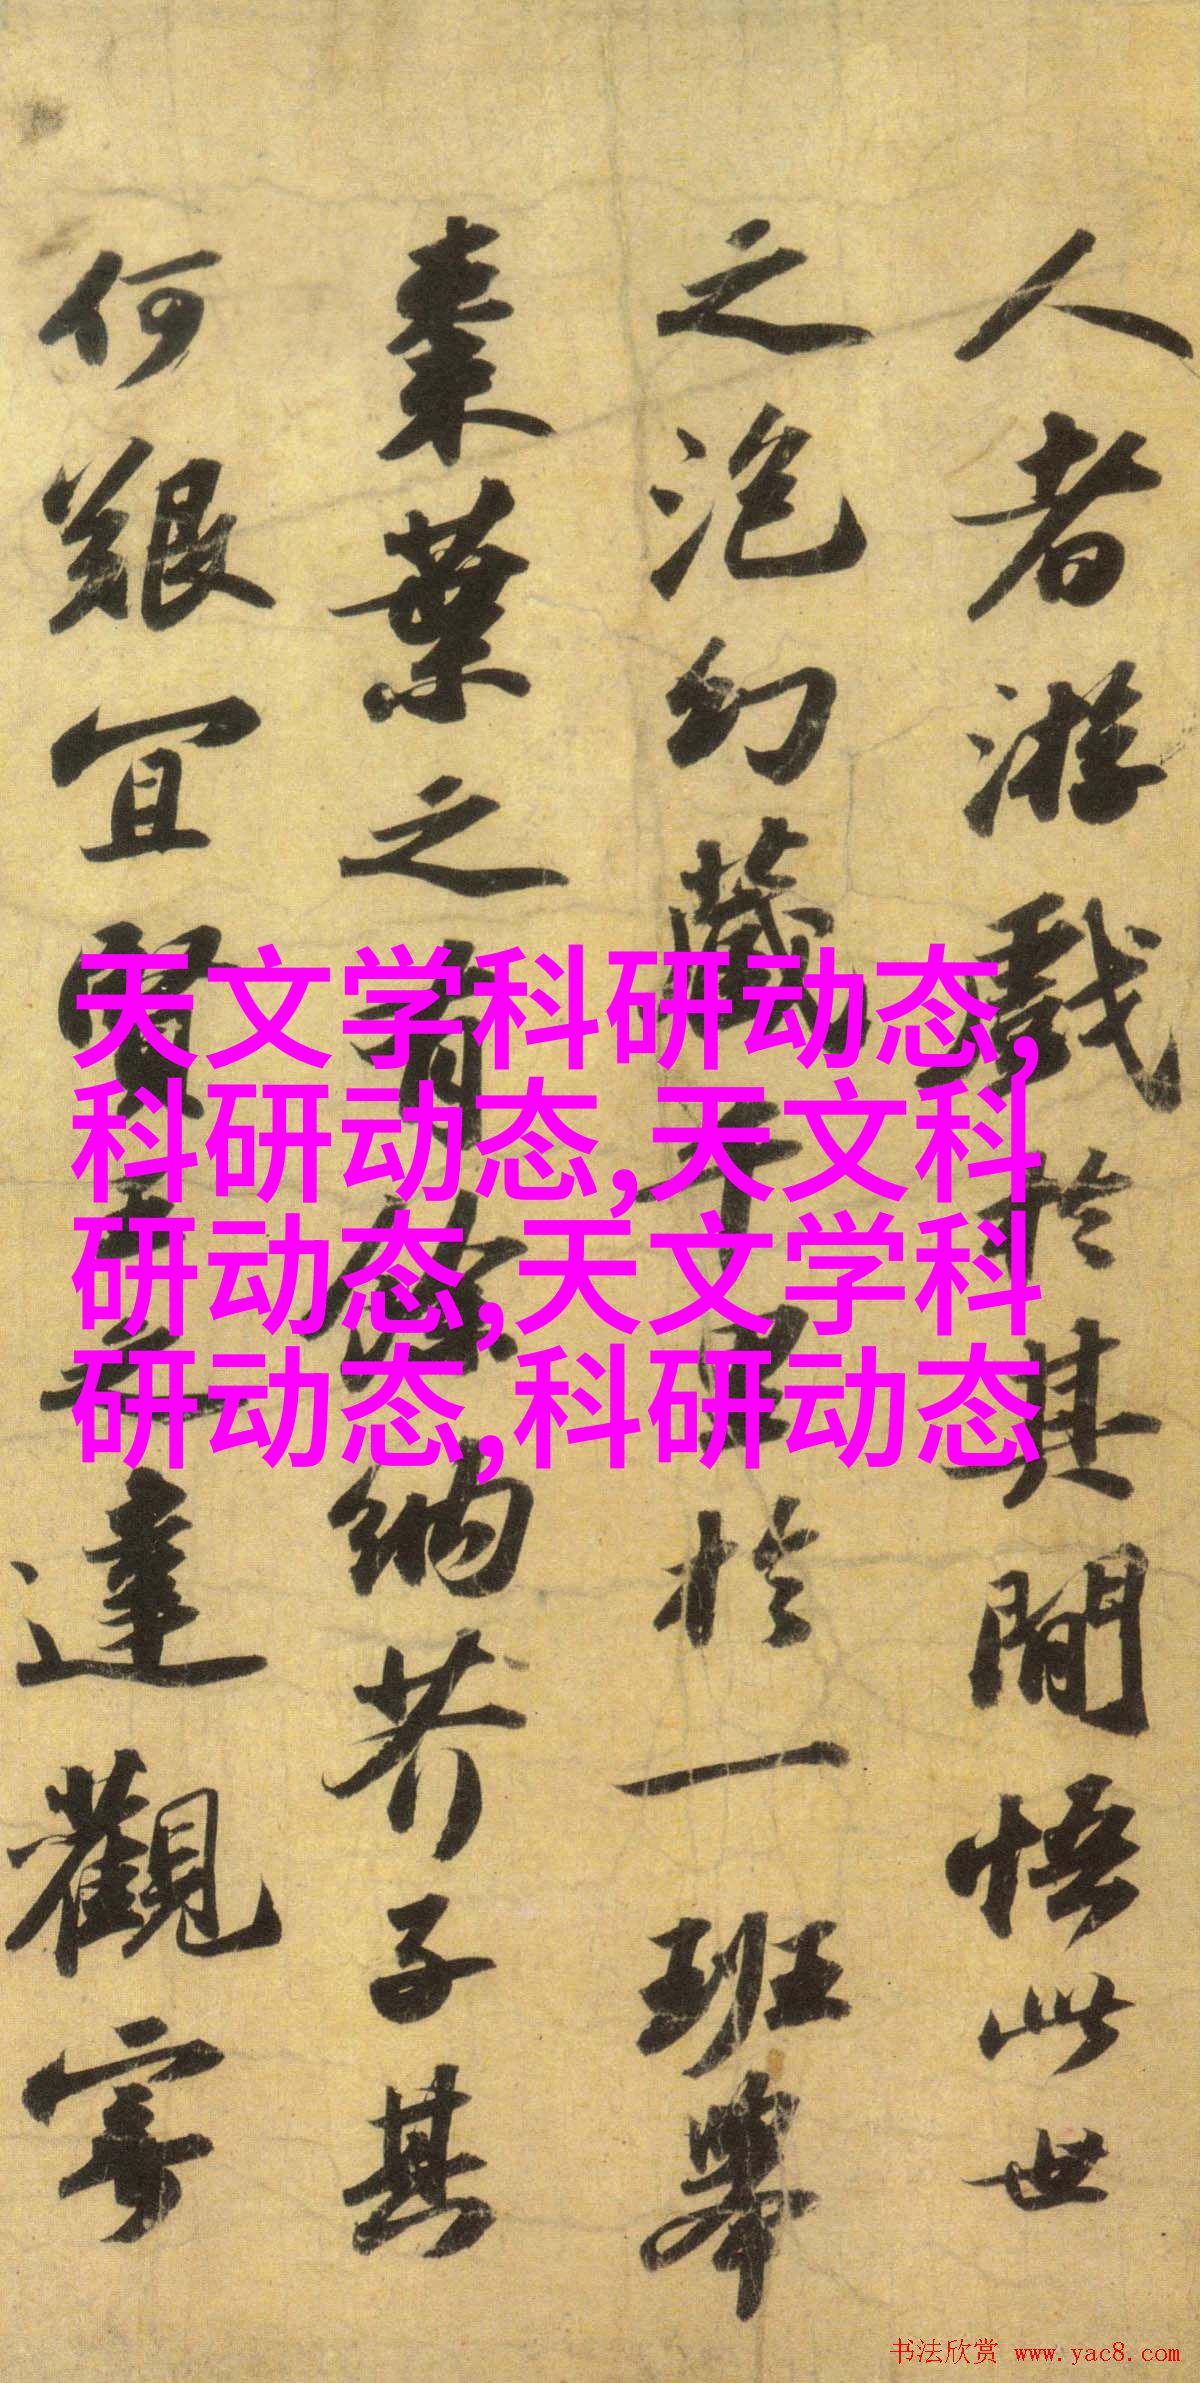 人者游戲於其間悟此世
之泡幻藏千里於一班舉
棗葉之有餘納芥子其
何艱宜賢王之達觀寄
天文学科研动态,
科研动态,天文科
研动态,天文学科
研动态,科研动态
书法欣赏 www.yac8.com